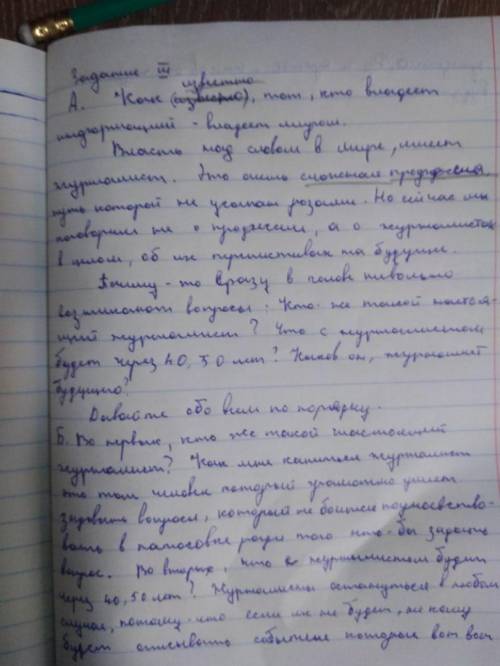 Задание III
известно
А. "Как (созвестно), тот, кто владеет
информацией - владеет миром.
Власть над словом в мире, имеет
журналист. Это очень сложная профессия
путь которой не усыпан розами. Но сейчас мы
поговорим не о профессии, а о журналистах
в целом, об их перспективах на будущее.
Почему-то сразу в голове невольно
возникают вопросы: Кто же такой настоя-
щий журналист? Что с журналистом
будет через 40, 50 лет? Каков он, журналист
будущего?
Давайте обо всем по порядку.
Б. Во первых, кто же такой настоящий
журналист? Как мне кажется журналист
это тот человек который грамотно умеет
задавать вопросы, который не боится поучаство-
вать в потасовке ради того что-бы задать
вопрос. Во вторых, что с журналистом будет
через 40, 50 лет? Журналисты останутся в любом
случае, потому-что если их не будет, не кому
будет описывать события которые вот вот